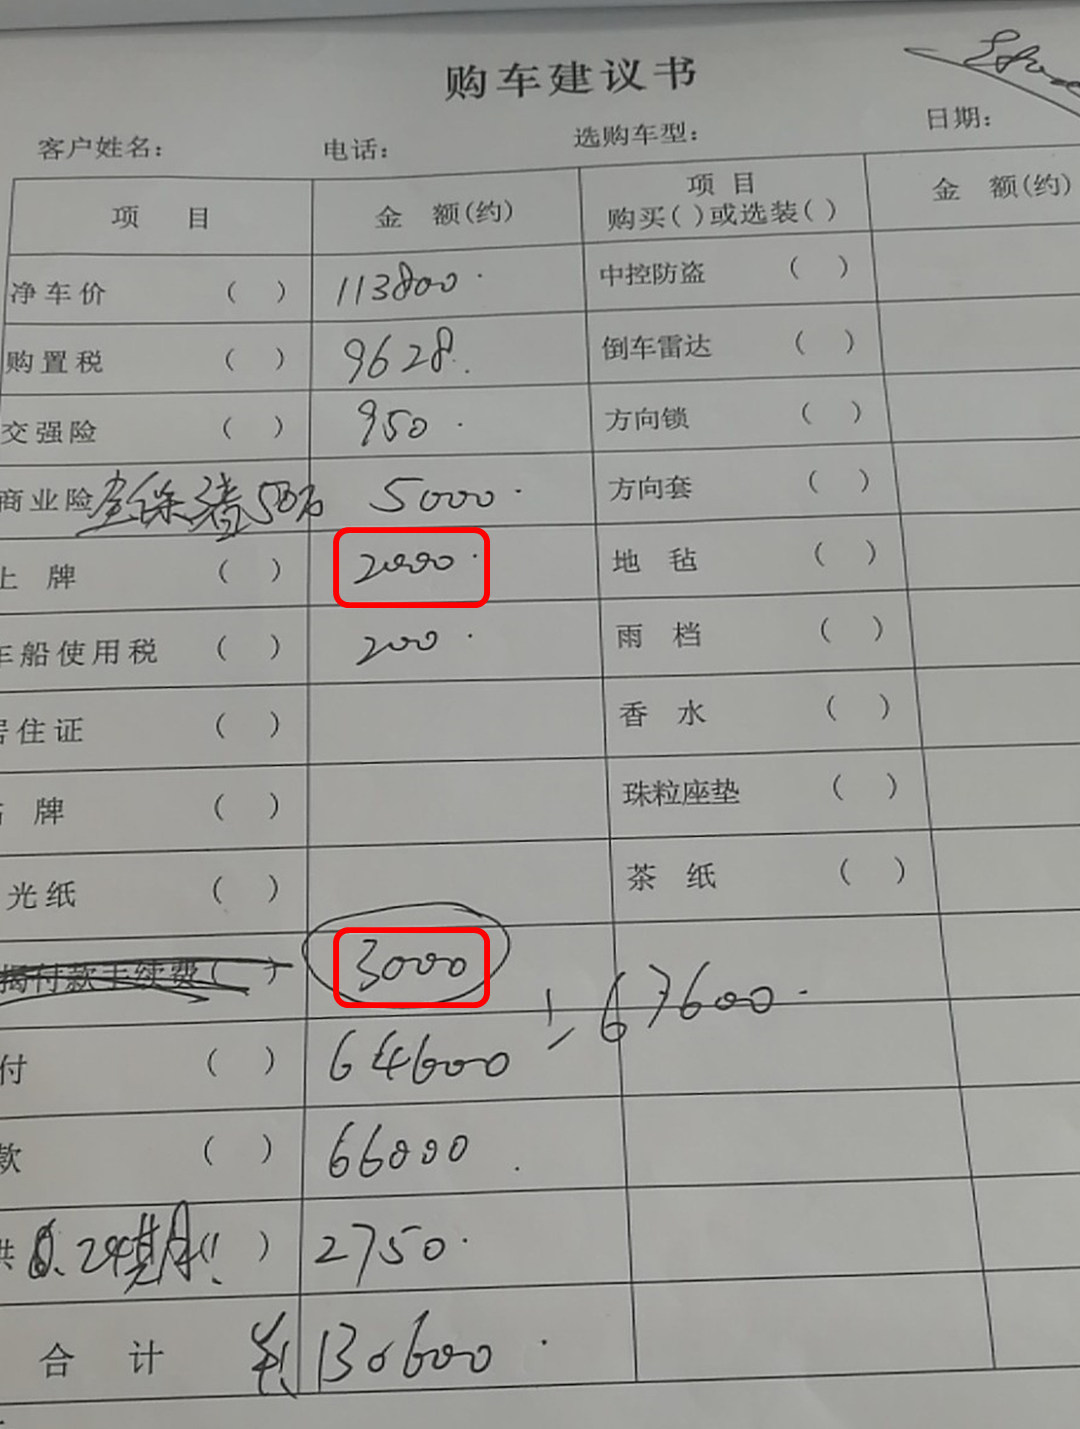 购车建议书
客户姓名： 电话： 选购车型： 日期：
项 目 金 额(约) 项 目 购买( )或选装( ) 金 额(约)
净车价 ( ) 113800 中控防盗 ( )
购置税 ( ) 9628 倒车雷达 ( )
交强险 ( ) 950 方向锁 ( )
商业险 全保 50万 5000 方向套 ( )
上 牌 ( ) 2000 地 毡 ( )
车船使用税 ( ) 200 雨 档 ( )
居住证 ( ) 香 水 ( )
牌 ( ) 珠粒座垫 ( )
光纸 ( ) 茶 纸 ( )
揭付款手续费( ) 3000
67600
付 ( ) 64600
款 ( ) 66000
供 24期 ) 2750
合 计 130600